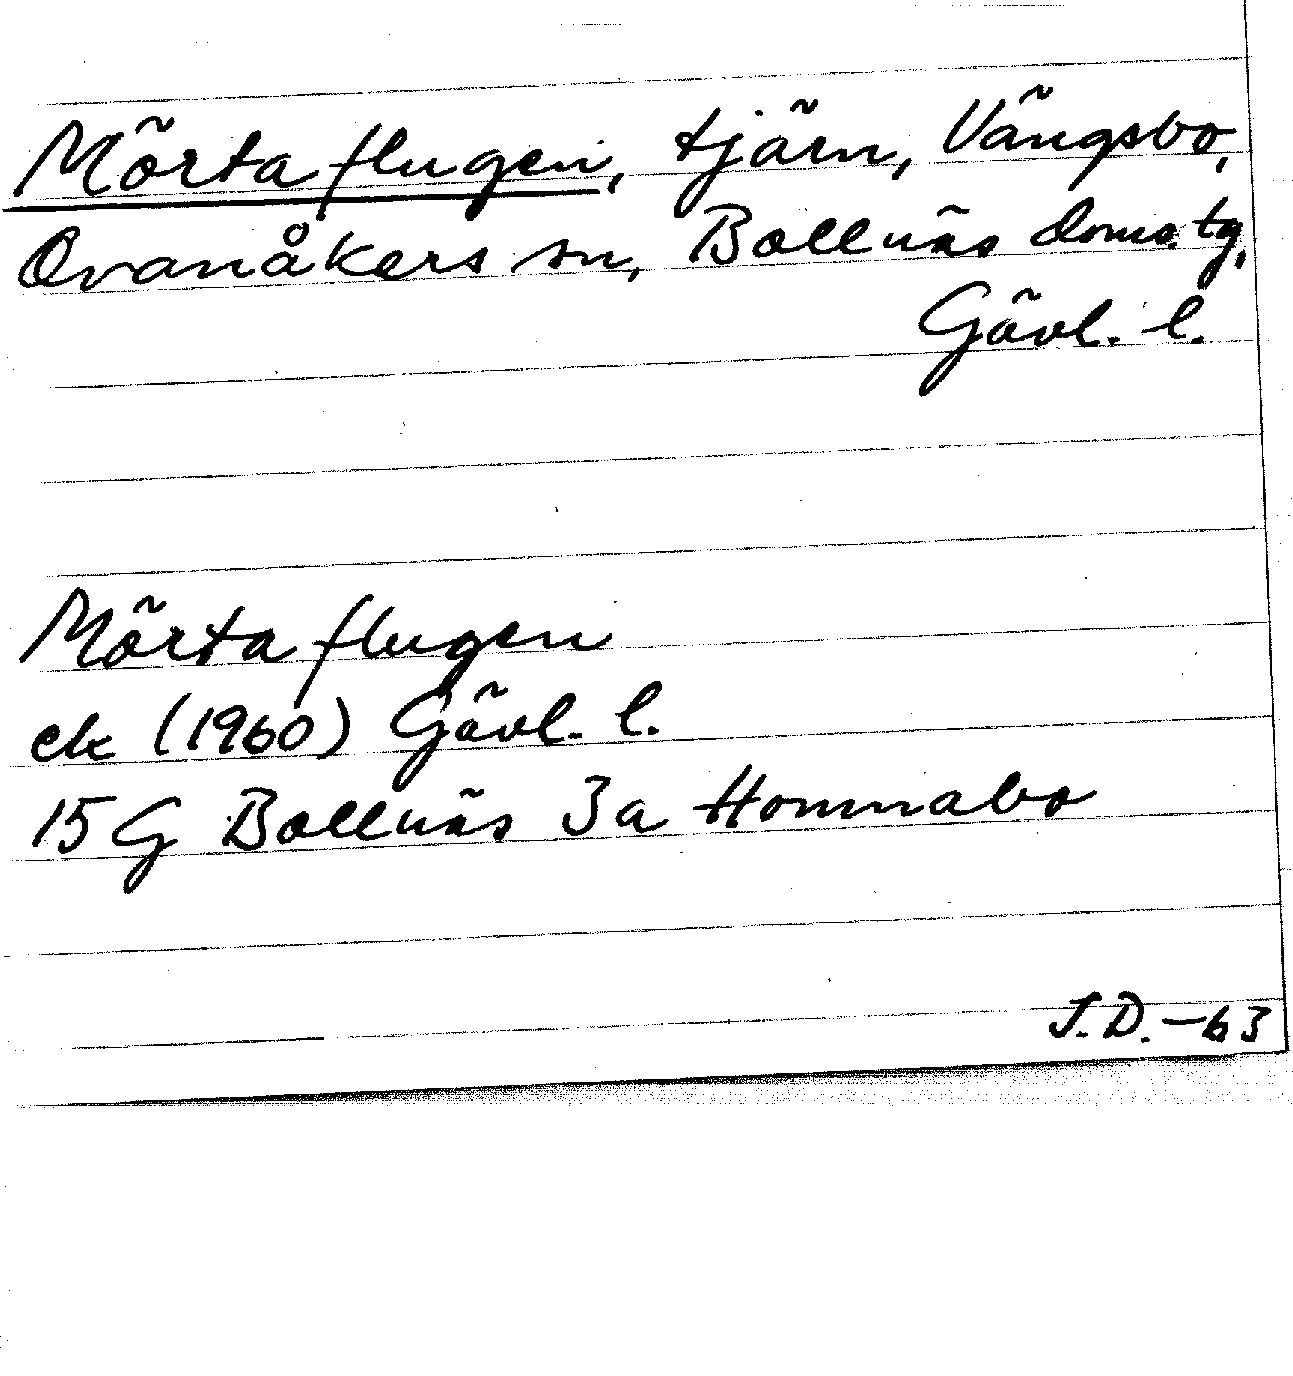 Mörtaflugen, tjärn, Vängsbo,
Ovanåkers sn, Bollnäs doms.tg,
Gävl. l.
Mörtaflugen
ek (1960) Gävl. l.
15 G Bollnäs 3a Homnabo
J.D.-63